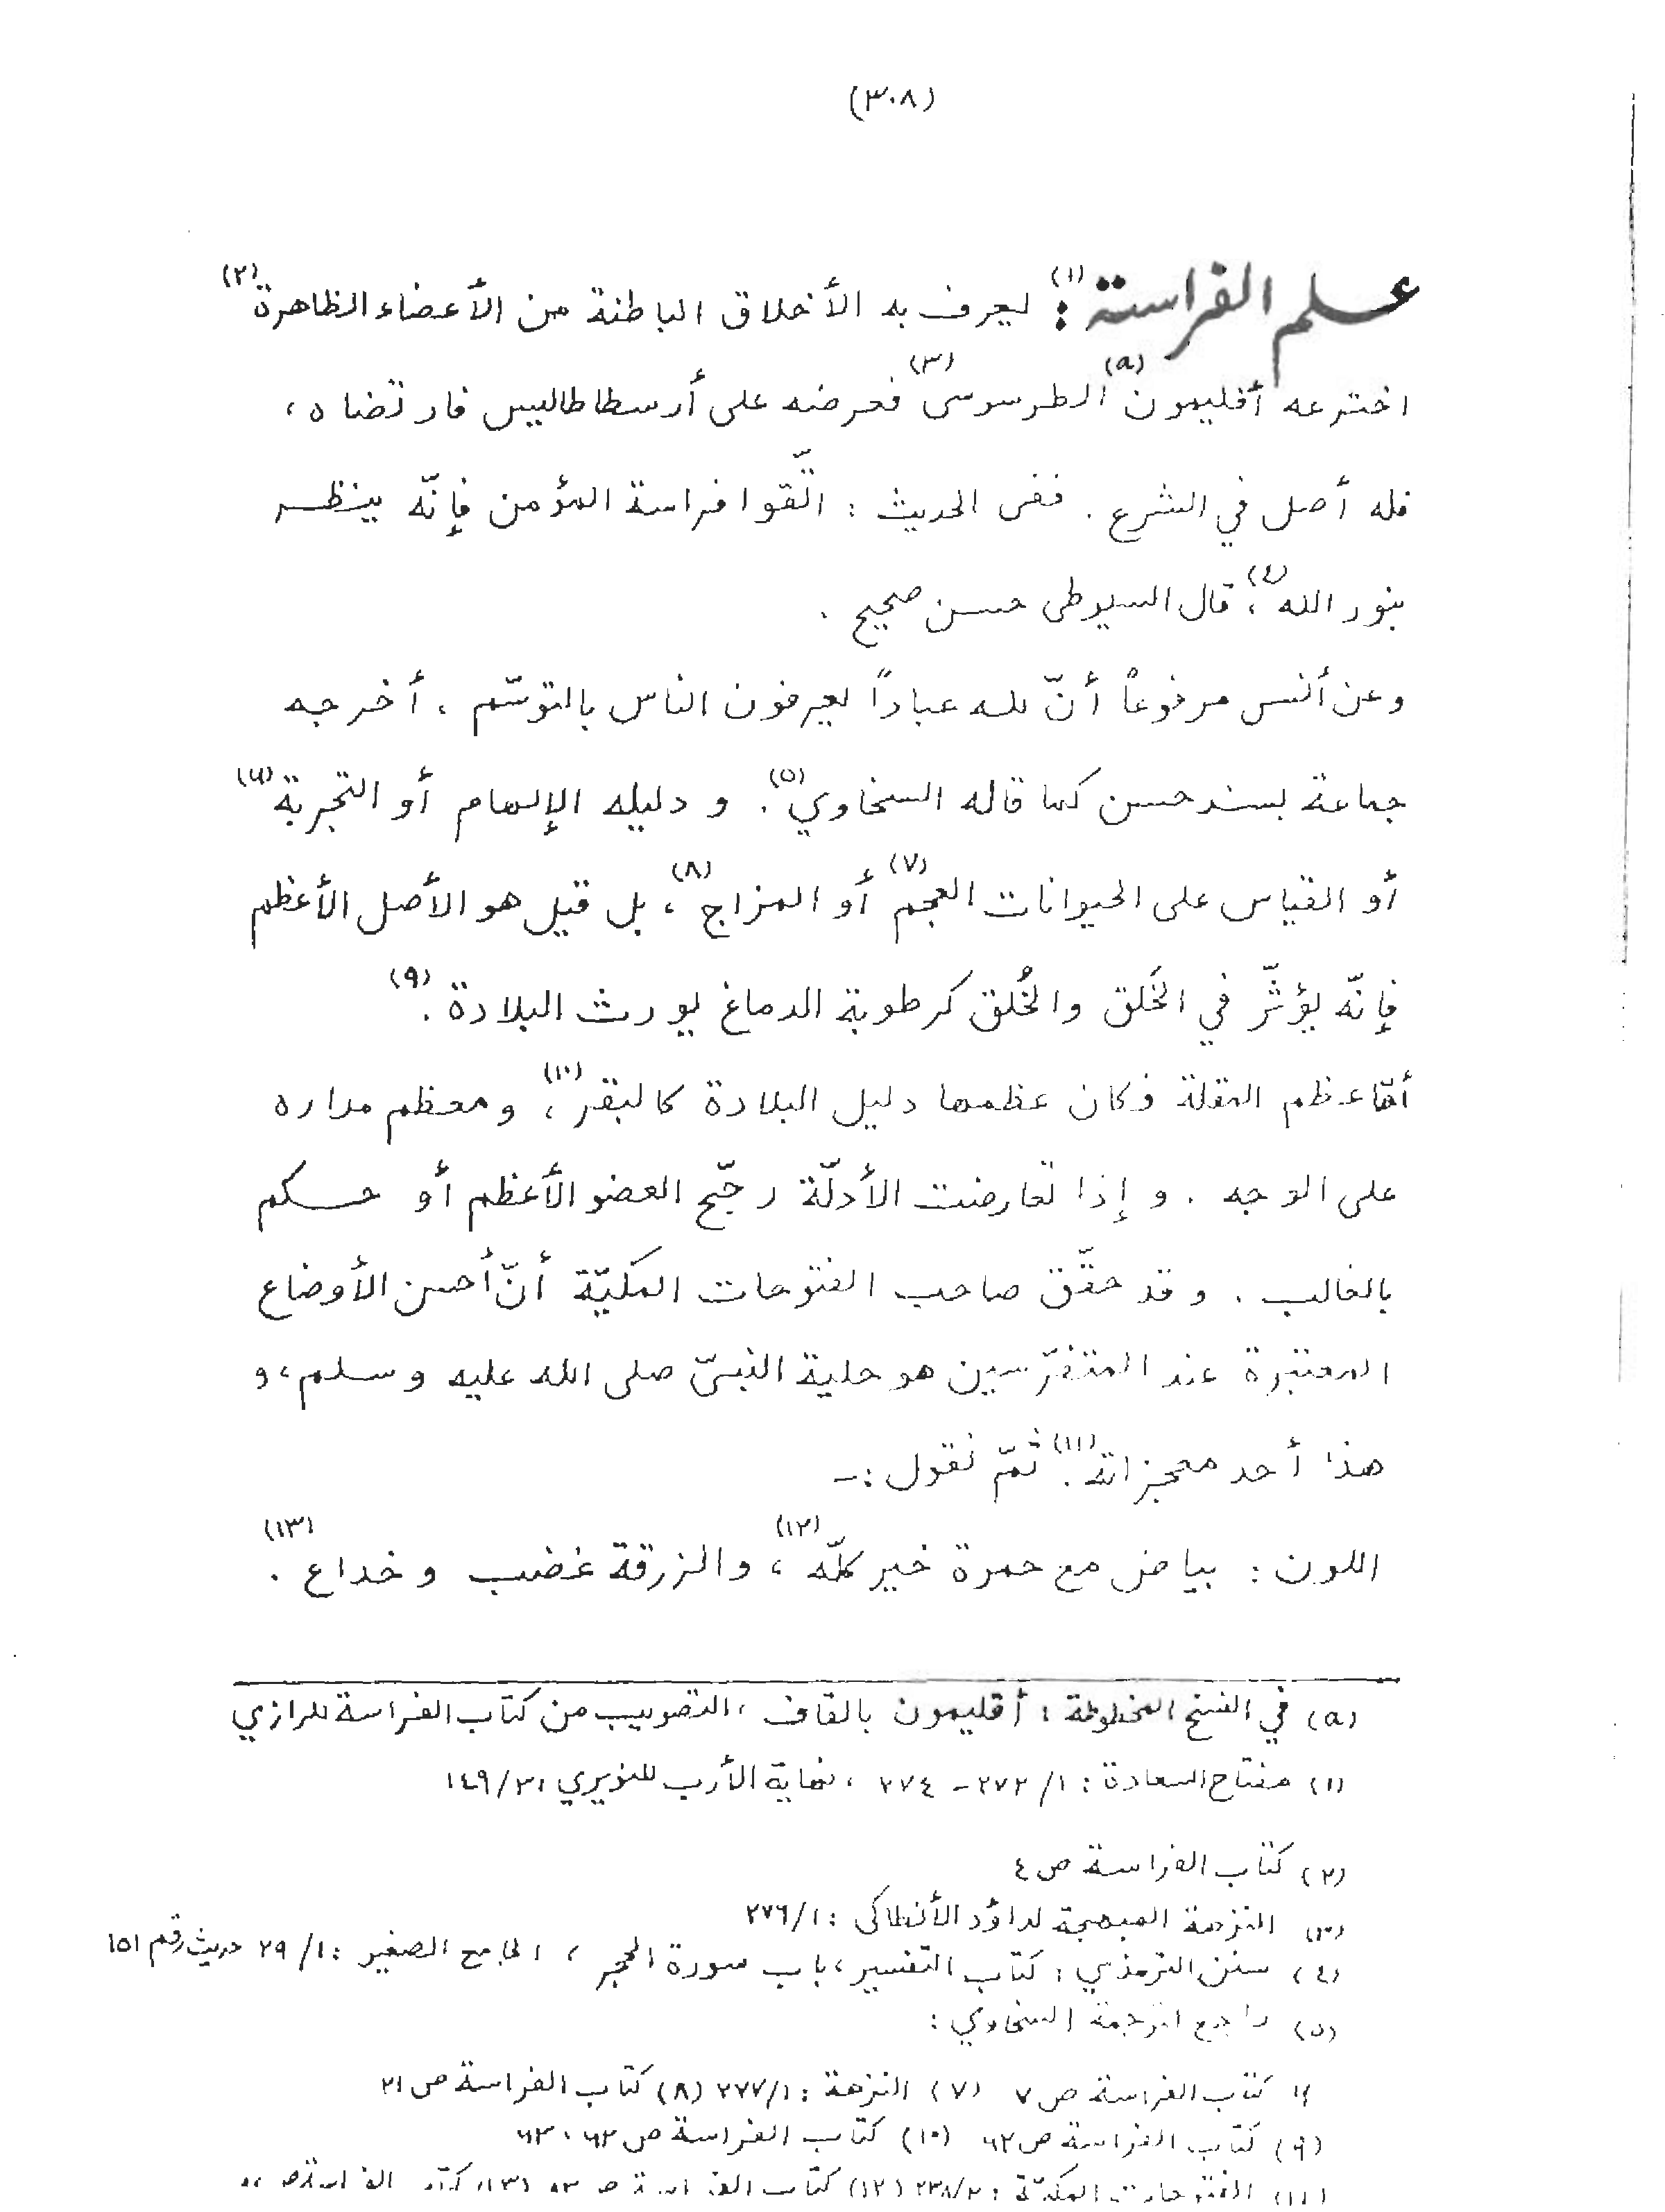 (٣٠٨)
علم الفراسة(١): يعرف به الأخلاق الباطنة من الأعضاء الظاهرة(٢)
اخترعه أفليمون(a) الطرسوسى(٣) فعرضه على أرسطاطاليس فارتضاه ،
فله أصل في الشرع . ففى الحديث : اتّقوا فراسة المؤمن فإنّه ينظر
بنور الله(٤) ، قال السيوطى حسن صحيح .
وعن أنس مرفوعاً أنّ لله عباداً يعرفون الناس بالتوسّم ، أخرجه
جماعة بسند حسن كما قاله السخاوي(٥) . و دليله الإلهام أو التجربة(٦)
أو القياس على الحيوانات العجم(٧) أو المزاج(٨) ، بل قيل هو الأصل الأعظم
فإنّه يؤثّر في الخَلق والخُلق كرطوبة الدماغ يورث البلادة .(٩)
أمّا عظم المقلة فكان عظمها دليل البلادة كالبقر(١٠) ، و معظم مداره
على الوجه . و إذا تعارضت الأدلّة رجّح العضو الأعظم أو حكم
بالغالب . و قد حقّق صاحب الفتوحات المكيّة أنّ أحسن الأوضاع
المعتبرة عند المتفرّسين هو حلية النبىّ صلى الله عليه وسلم ، و
هذا أحد معجزاته(١١) . ثمّ نقول :-
اللون : بياض مع حمرة خير كلّه(١٢) ، والزرقة غضب و خداع(١٣) .
(a) في النسخ المخطوطة : أقليمون بالقاف ، التصويب من كتاب الفراسة للرازي
(١) مفتاح السعادة : ١/ ٢٧٢ - ٢٧٤ ، نهاية الأرب للنويري ٣/ ١٤٩
(٢) كتاب الفراسة ص ٤
(٣) النزهة المبهجة لداؤد الأنطاكى : ١/ ٢٧٦
(٤) سنن الترمذي : كتاب التفسير ، باب سورة الحجر ، الجامع الصغير : ١/ ٢٩ حديث رقم ١٥١
(٥) راجع لترجمة السخاوي :
كتاب الفراسة ص ٧ (٧) النزهة : ١/ ٢٧٧ (٨) كتاب الفراسة ص ٢١
(٩) كتاب الفراسة ص ٦٢ (١٠) كتاب الفراسة ص ٦٢ ، ٦٣
(١١) الفتوحات المكيّة : ٢/ ٢٣٨ (١٢) كتاب الفراسة ص ٥٣ (١٣) كتاب الفراسة ص